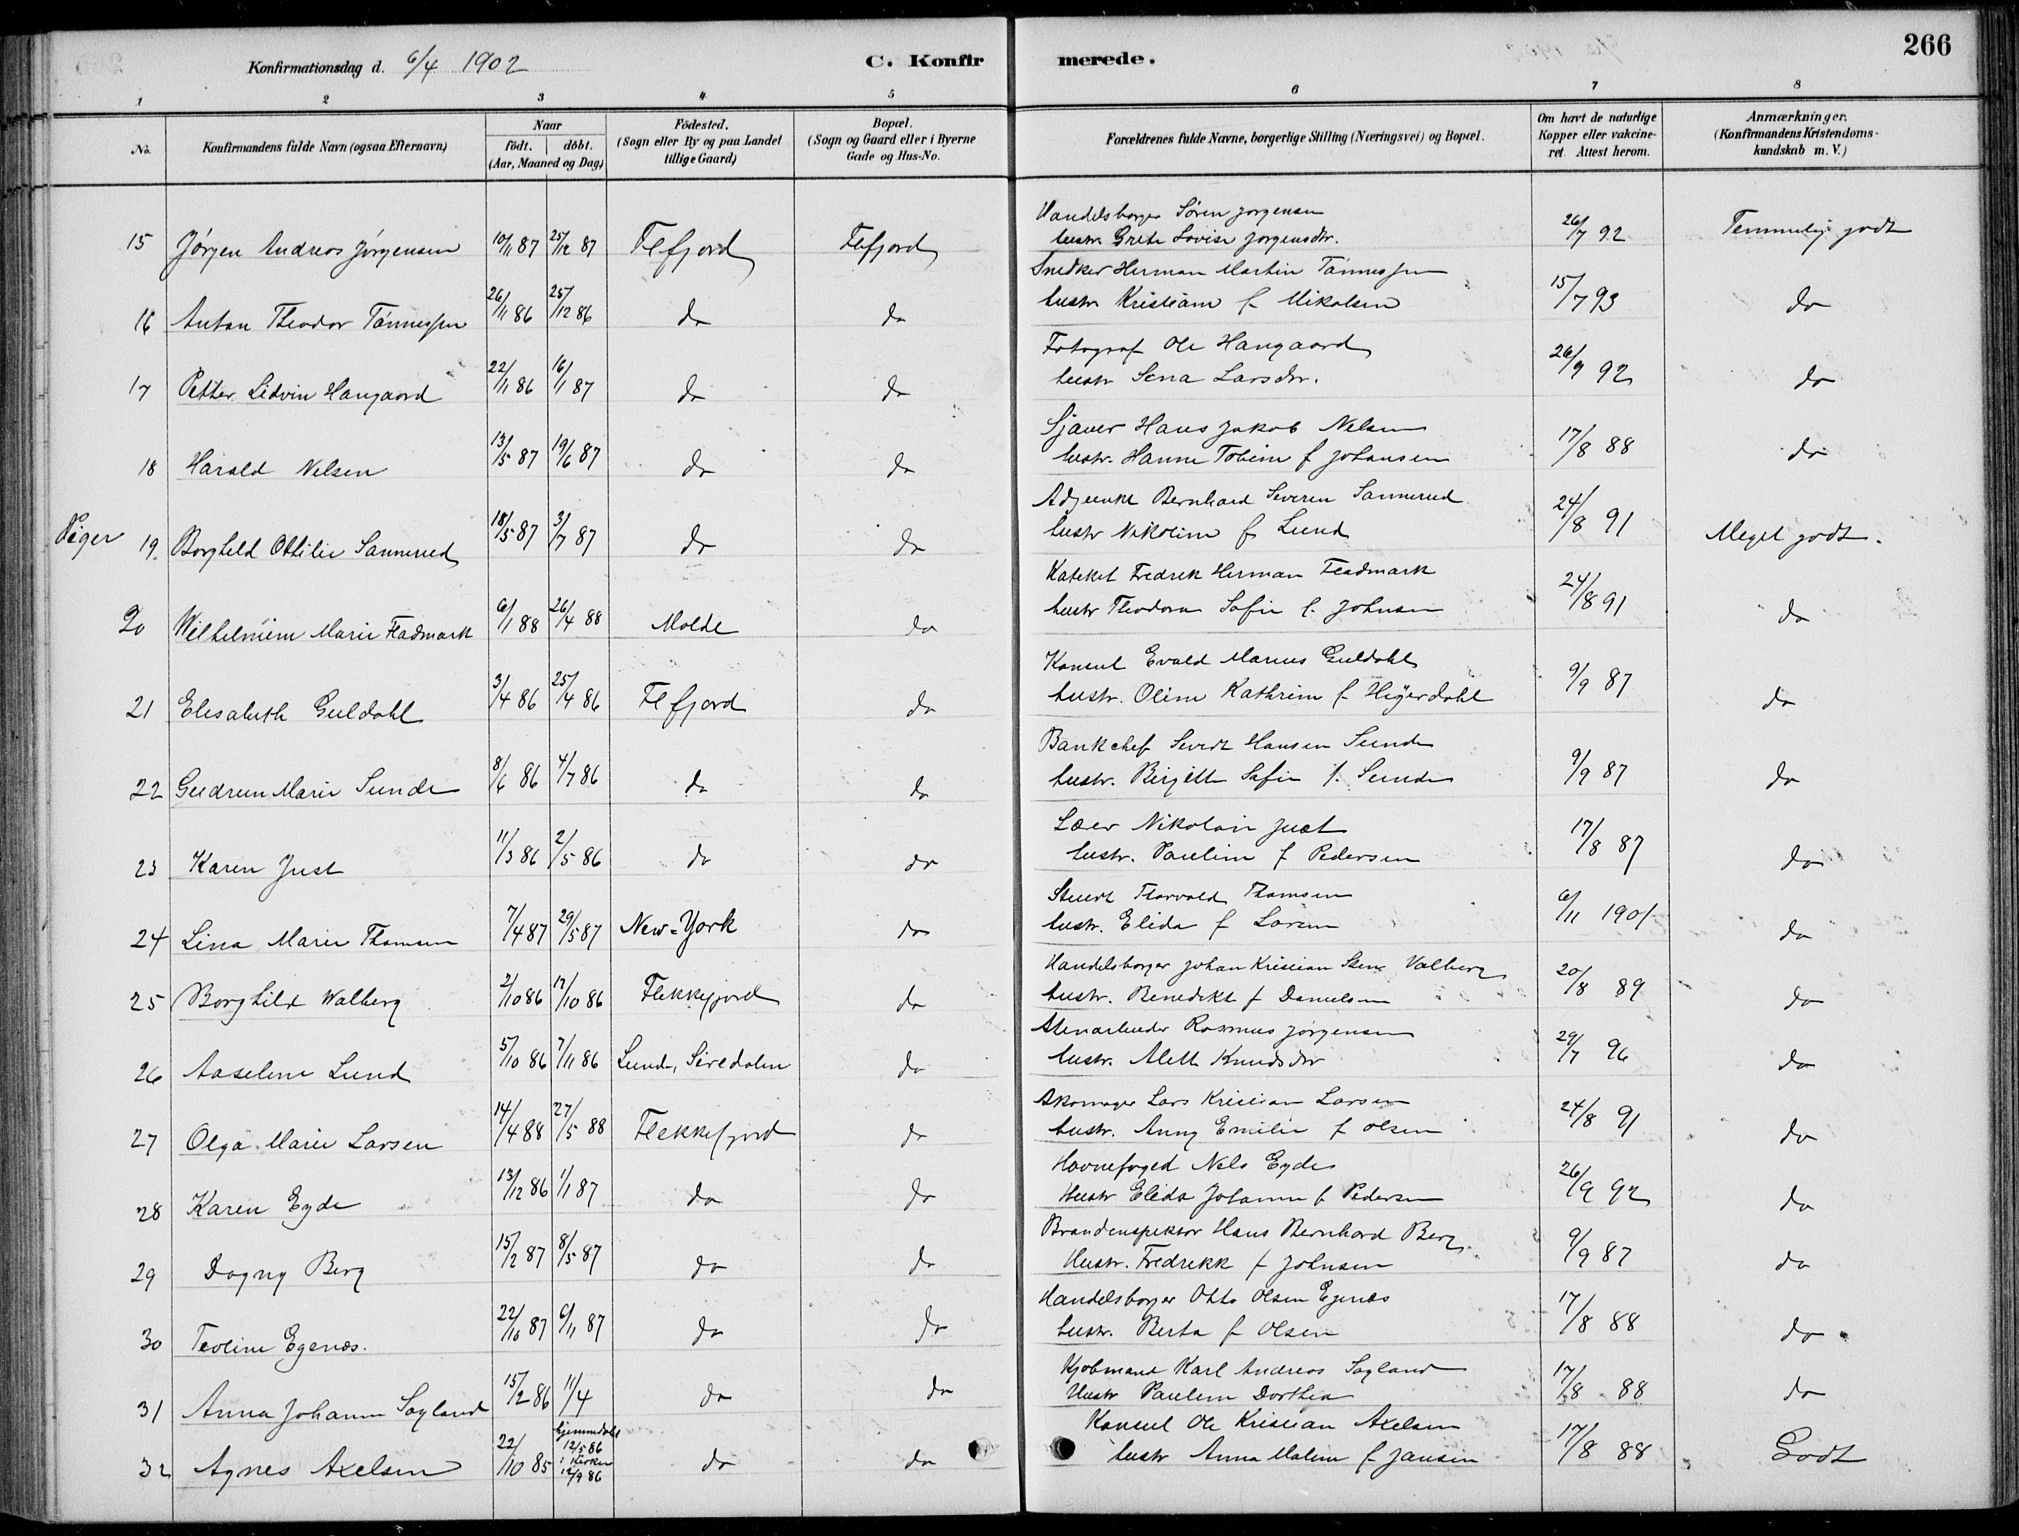 Konfirmationsdag d. 6/4 1902
C. Konfirmerede.
266
1 2 3 4 5 6 7 8
No.
Konfirmandens fulde Navn (ogsaa Efternavn)
Naar
födt. döbt.
(Aar, Maaned og Dag)
Födested.
(Sogn eller By og paa Landet
tillige Gaard)
Bopæl.
(Sogn og Gaard eller i Byerne
Gade og Hus-No.
Forældrenes fulde Navne, borgerlige Stilling (Næringsvei) og Bopæl.
Om havt de naturlige
Kopper eller vakcine-
ret. Attest herom.
Anmærkninger.
(Konfirmandens Kristendoms-
kundskab m. V.)
Handelsborger Sören Jorgensen
15 Jørgen Andreas Jørgensen 10/11 87 25/12 87 Flfjord Flfjord hustr. Grete Lovise Jorgensdtr. 26/7 92 Temmelig godt
Snedker Herman Martin Tönnessen
16 Anton Theodor Tönnessen 26/11 86 25/12 86 do do hustr. Kristiane f. Mikalsen 15/7 93 do
Fotograf Ole Haugaard
17 Petter Lidvin Haugaard 22/11 86 16/1 87 do do hustr Sena Larsdtr. 26/9 92 do
Sjauer Hans Jakob Nelsen
18 Harald Nelsen 13/5 87 19/6 87 do do hustr. Hanne Tobine f Johansen 17/8 88 do
Piger
Adjunkt Bernhard Severin Sannerud
19. Borghild Ottilie Sannerud 18/5 87 3/7 87 do do hustr Nikoline f. Lund 24/8 91 Meget godt.
Kateket Fredrik Herman Fladmark
20 Wilhelmine Marie Fladmark 6/1 88 26/4 88 Molde do hustr Theodora Sofie f. Johnsen 24/8 91 do
Konsul Evald Marius Guldahl
21 Elisabeth Guldahl 3/4 86 25/4 86 Flfjord do hustr. Oline Kathrine f Heyerdahl 9/9 87 do
Bankchef Sivert Hansen Sunde
22 Gudrun Marie Sunde 8/6 86 4/7 86 do do hustr. Birgitte Sofie f. Sunde 9/9 87 do
Nikolai Just
23 Karen Just 11/3 86 2/5 86 do do hustr. Pauline f Pedersen 17/8 87 do
Stuert Thorvald Thomsen
24 Lina Marie Thomsen 7/4 87 29/5 87 New-York do hustr. Elida f Larsen 6/11 1901 do
Handelsborger Johan Kristian Valberg
25 Borghild Walberg 2/10 86 17/10 86 Flekkefjord do hustr. Benedikte f Danielsen 20/8 89 do
Stenarbeider Rasmus Jørgensen
26 Aaseline Lund 5/10 86 7/11 86 Lunde, Siredalen do hustr. Alette Knudsdtr 29/7 96 do
Skomager Lars Kristian Larsen
27 Olga Marie Larsen 14/4 88 27/5 88 Flekkefjord do hustr. Anny Emilie f Olsen 24/8 91 do
Havnefoged Nels Eyde
28 Karen Eyde 13/12 86 1/1 87 do do Hustr Elida Johanne f. Pedersen 26/9 92 do
Brandinspektor Hans Bernhard Berg
29 Dagny Berg 15/2 87 8/5 87 do do Hustr. Fredrikke f Johnsen 9/9 87 do
Handelsborger Otto Olsen Egenæs
30 Teoline Egenæs. 22/10 87 6/11 87 do do hustr. Berta f Olsen 17/8 88 do
Kjøbmand Karl Andreas Søyland
31 Anna Johanne Søyland 15/2 86 11/4 do do Hustr Pauline Dorthea 17/8 88 do
Konsul Ole Kristian Axelsen
32 Agnes Axelsen 22/10 85 hjemmedøbt 12/5 86 i Kirken 12/9 86 do do hustr Anna Malene f Jansen 17/8 88 Godt